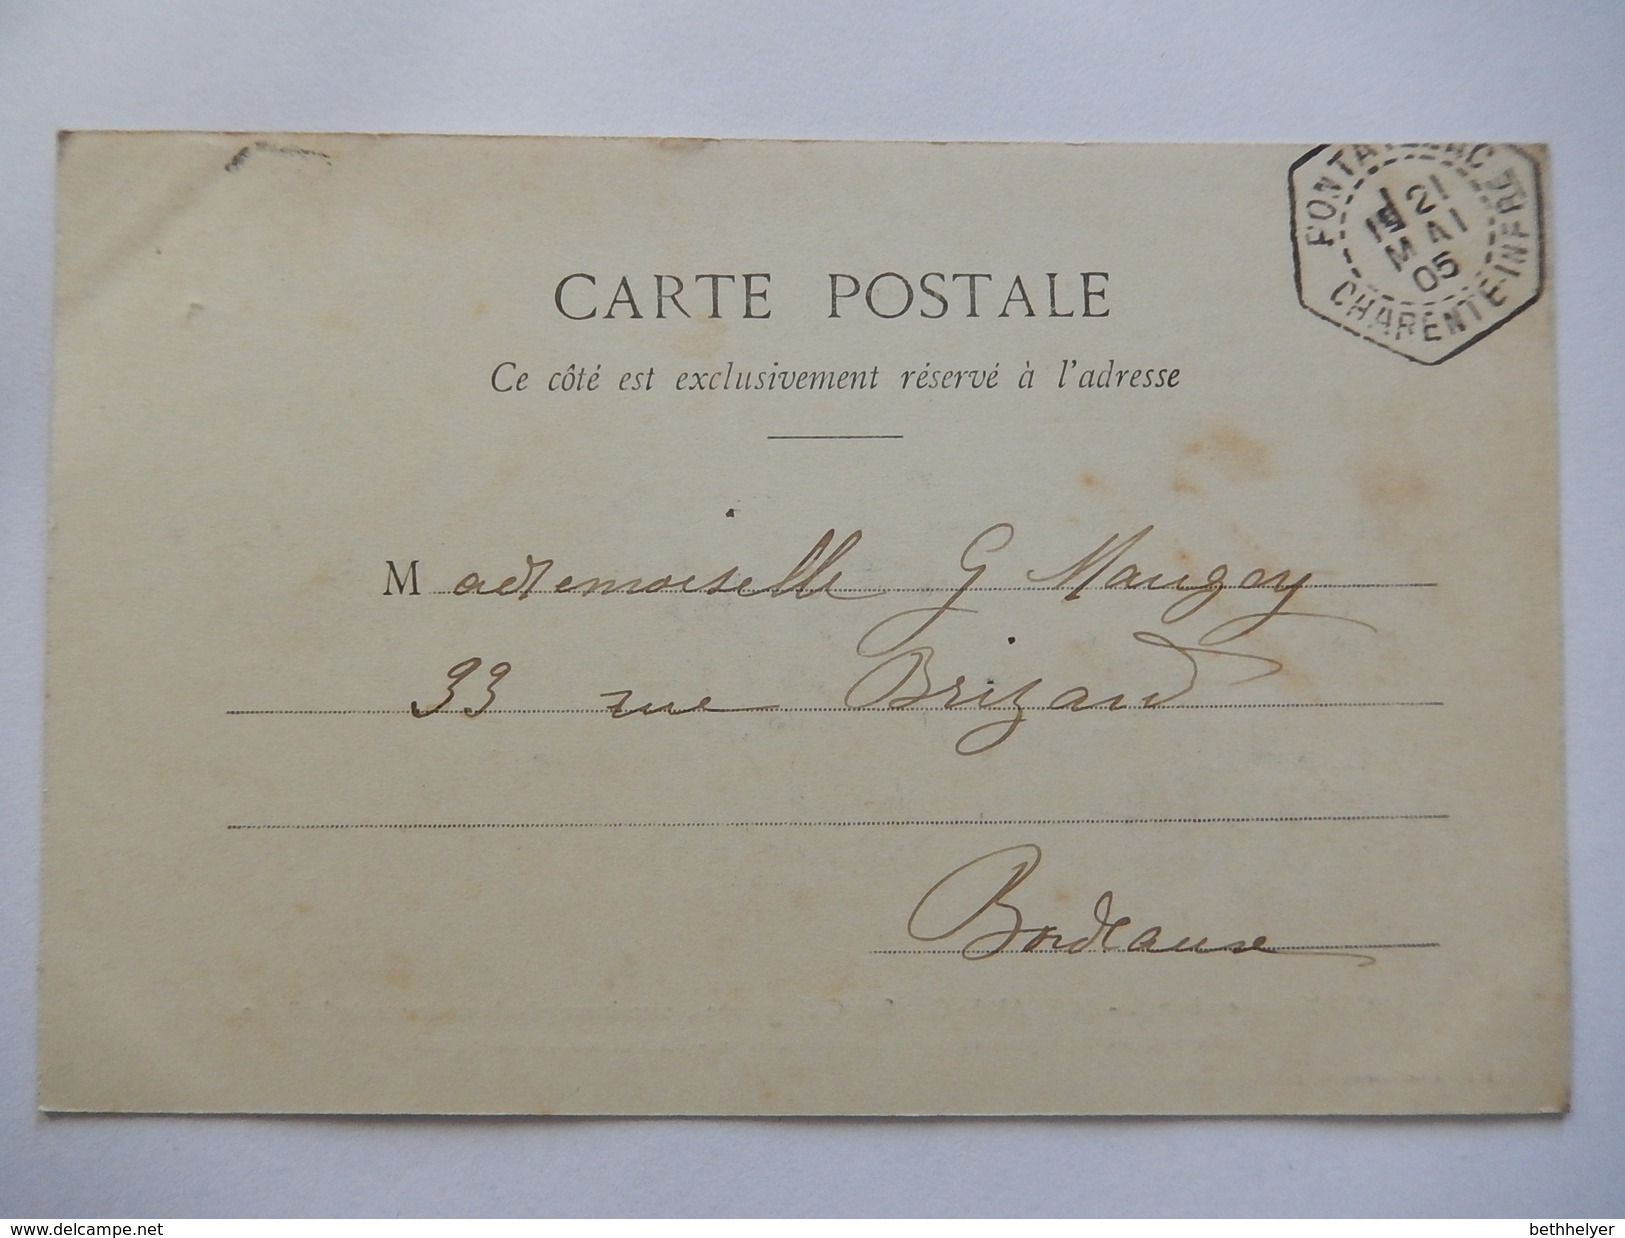 FONTAILLAC
21
MAI
05
CHARENTE-INFRE
CARTE POSTALE
Ce côté est exclusivement réservé à l'adresse
Mademoiselle G Maugey
33 rue Brizard
Bordeaux
www.delcampe.net
bethhelyer